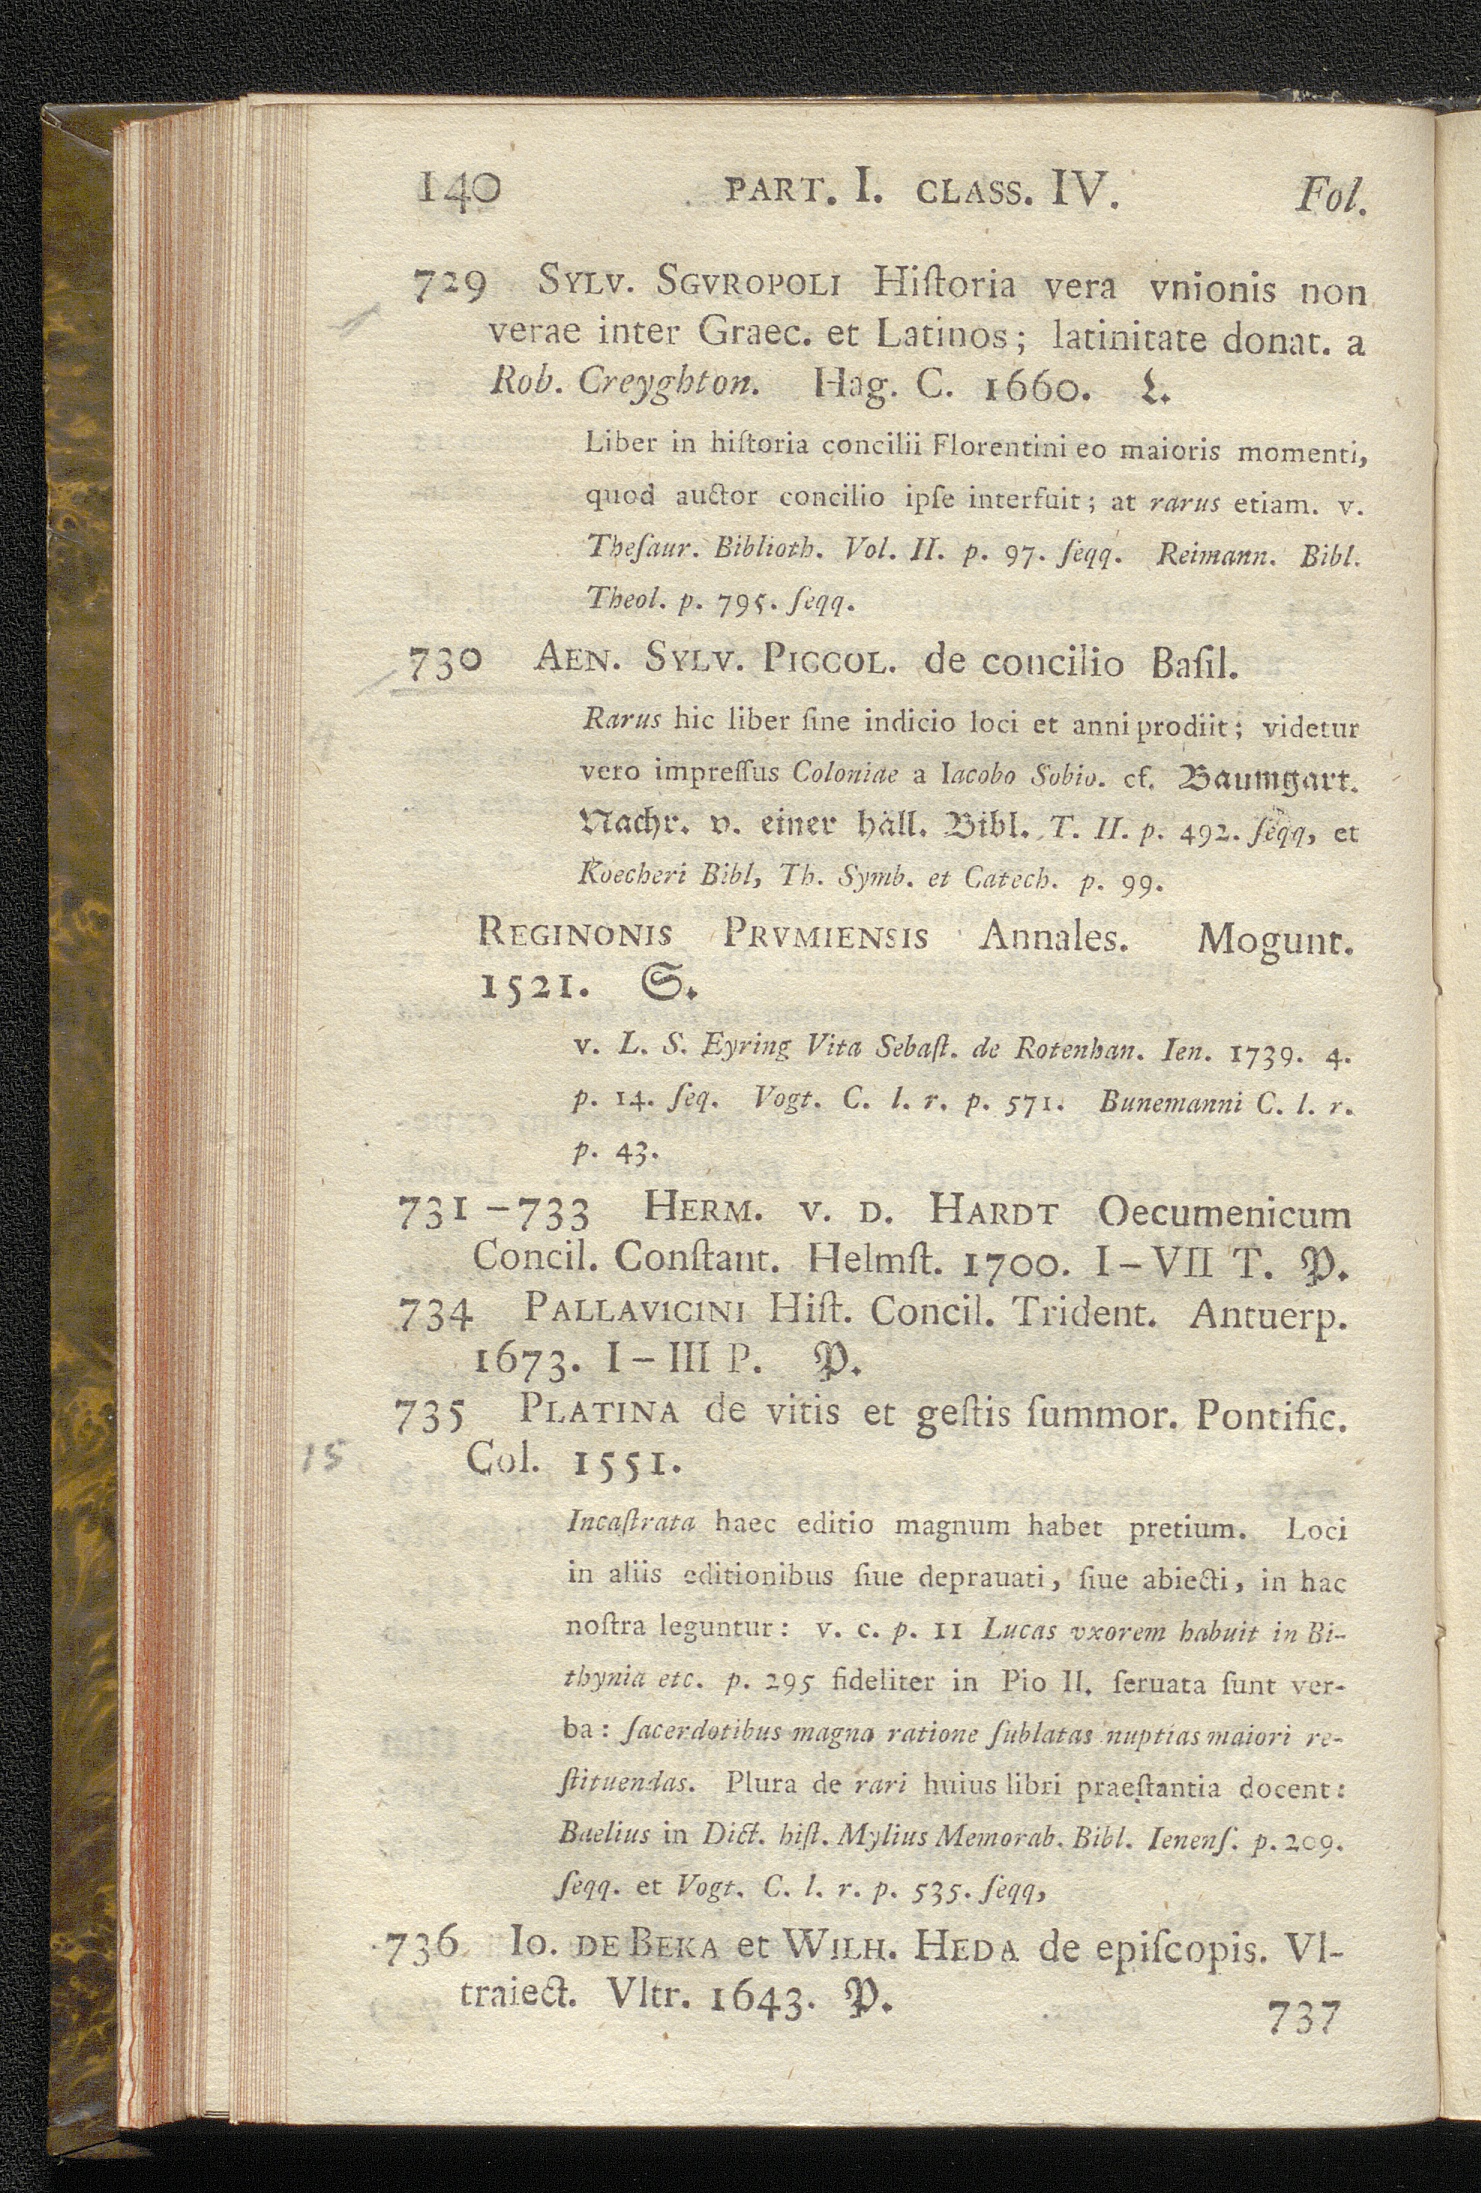 140 PART. I. CLASS. IV. Fol.
729 SYLV. SGVROPOLI Hiſtoria vera vnionis non
verae inter Graec. et Latinos; latinitate donat. a
Rob. Creyghton. Hag. C. 1660. L.
Liber in hiſtoria concilii Florentini eo maioris momenti,
quod auctor concilio ipſe interfuit; at rarus etiam. v.
Theſaur. Biblioth. Vol. II. p. 97. ſeqq. Reimann. Bibl.
Theol. p. 795. ſeqq.
730 AEN. SYLV. PICCOL. de concilio Baſil.
Rarus hic liber ſine indicio loci et anni prodiit; videtur
vero impreſſus Coloniae a Iacobo Sobio. cf. Baumgart.
Nachr. v. einer häll. Bibl. T. II. p. 492. ſeqq, et
Koecheri Bibl, Th. Symb. et Catech. p. 99.
REGINONIS PRVMIENSIS Annales. Mogunt.
1521. S.
v. L. S. Eyring Vita Sebaſt. de Rotenhan. Ien. 1739. 4.
p. 14. ſeq. Vogt. C. l. r. p. 571. Bunemanni C. l. r.
p. 43.
731-733 HERM. V. D. HARDT Oecumenicum
Concil. Conſtant. Helmſt. 1700. I-VII T. P.
734 PALLAVICINI Hiſt. Concil. Trident. Antuerp.
1673. I-III P. P.
735 PLATINA de vitis et geſtis ſummor. Pontific.
15 Col. 1551.
Incaſtrata haec editio magnum habet pretium. Loci
in aliis editionibus ſiue deprauati, ſiue abiecti, in hac
noſtra leguntur: v. c. p. 11 Lucas vxorem habuit in Bi-
thynia etc. p. 295 fideliter in Pio II. ſeruata ſunt ver-
ba: ſacerdotibus magna ratione ſublatas nuptias maiori re-
ſtituendas. Plura de rari huius libri praeſtantia docent:
Baelius in Dict. hiſt. Mylius Memorab. Bibl. Ienenſ. p. 209.
ſeqq. et Vogt. C. l. r. p. 535. ſeqq,
736 IO. DE BEKA et WILH. HEDA de epiſcopis. Vl-
traiect. Vltr. 1643. P.
737